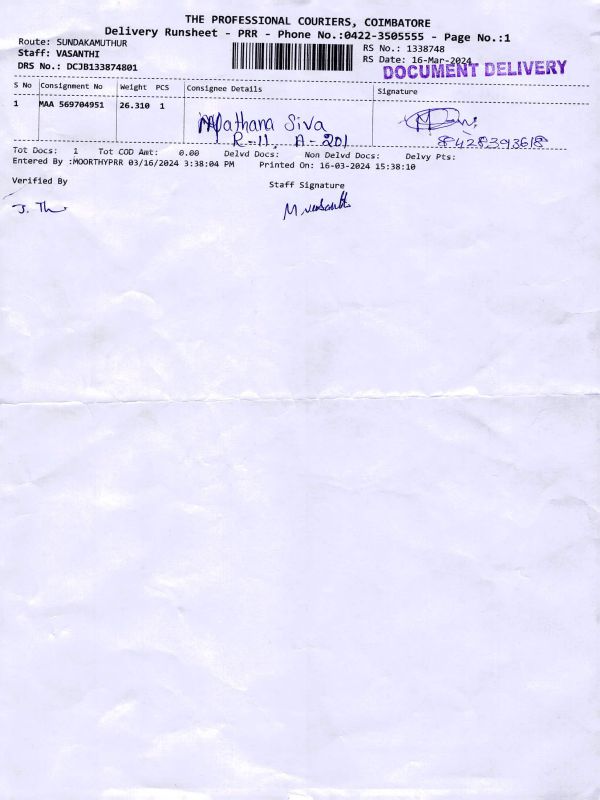 THE PROFESSIONAL COURIERS, COIMBATORE
Delivery Runsheet - PRR - Phone No.:0422-3505555 - Page No.:1
Route: SUNDAKAMUTHUR
RS No.: 1338748
Staff: VASANTHI
RS Date: 16-Mar-2024
DRS No.: DCJB133874801
DOCUMENT DELIVERY
S No Consignment No Weight PCS Consignee Details Signature
1 MAA 569704951 26.310 1
Mathana Siva
R-11, A-201
8428393618
Tot Docs: 1 Tot COD Amt: 0.00 Delvd Docs: Non Delvd Docs: Delvy Pts:
Entered By :MOORTHYPRR 03/16/2024 3:38:04 PM Printed On: 16-03-2024 15:38:10
Verified By
Staff Signature
M